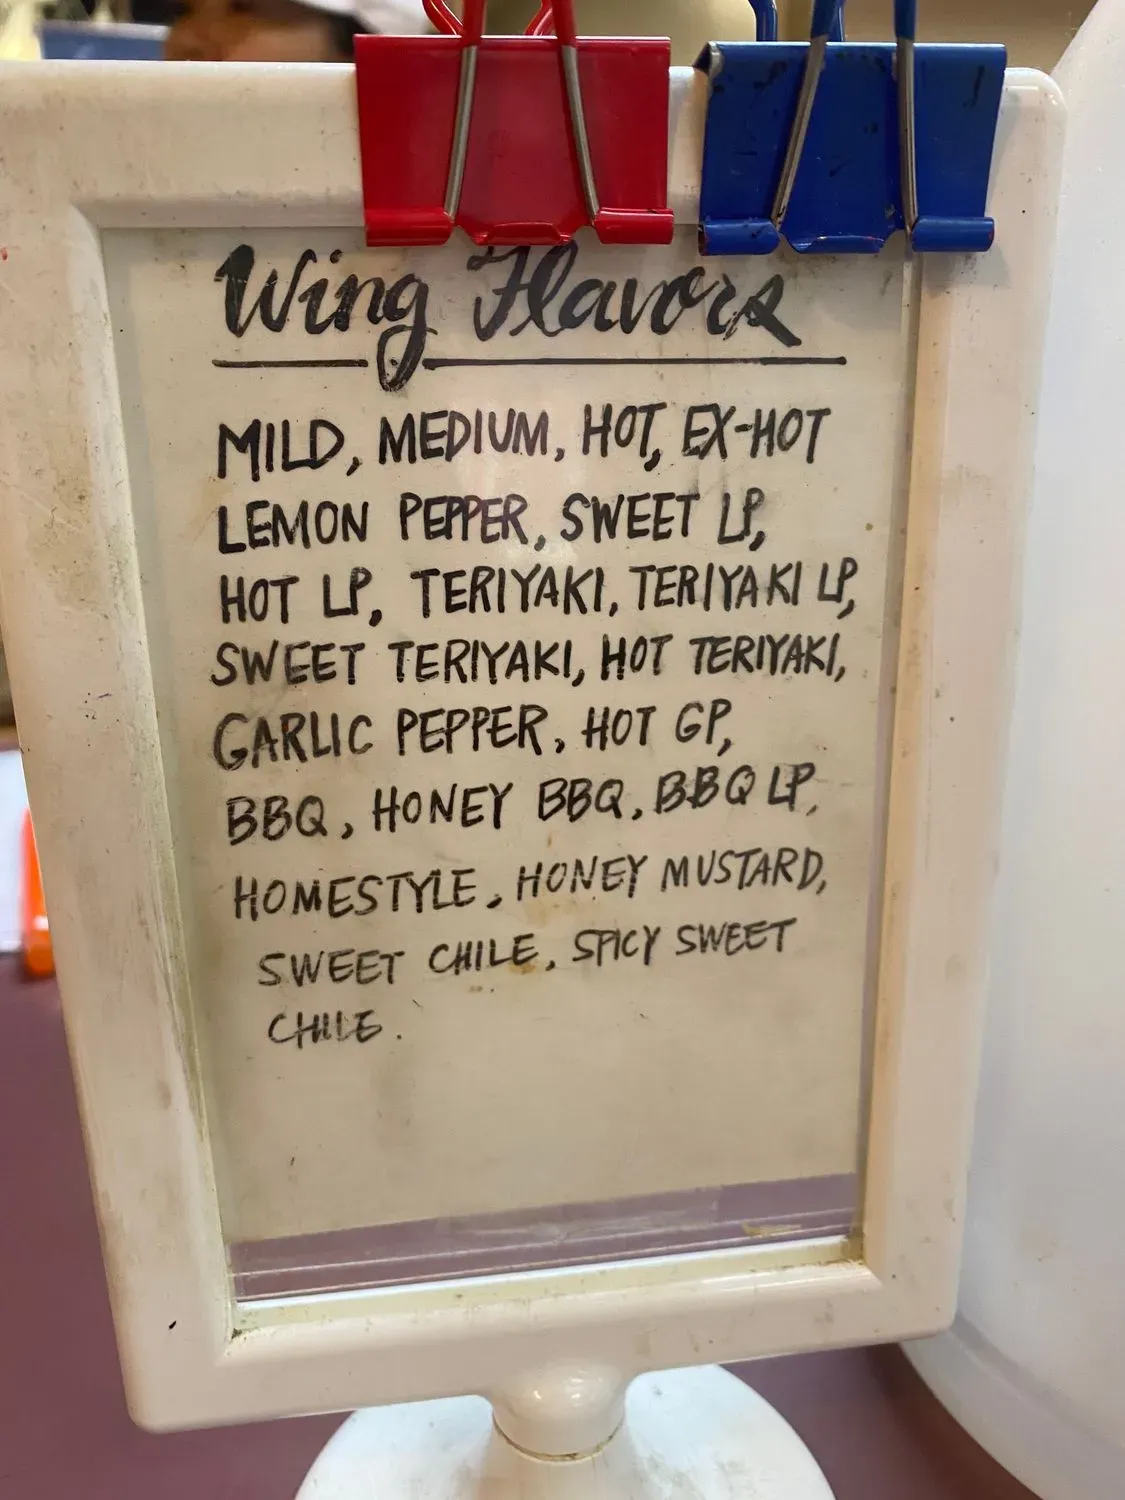 Wing Flavors
MILD, MEDIUM, HOT, EX-HOT
LEMON PEPPER, SWEET LP,
HOT LP, TERIYAKI, TERIYAKI LP,
SWEET TERIYAKI, HOT TERIYAKI,
GARLIC PEPPER, HOT GP,
BBQ, HONEY BBQ, BBQ LP,
HOMESTYLE, HONEY MUSTARD,
SWEET CHILE, SPICY SWEET
CHILE.